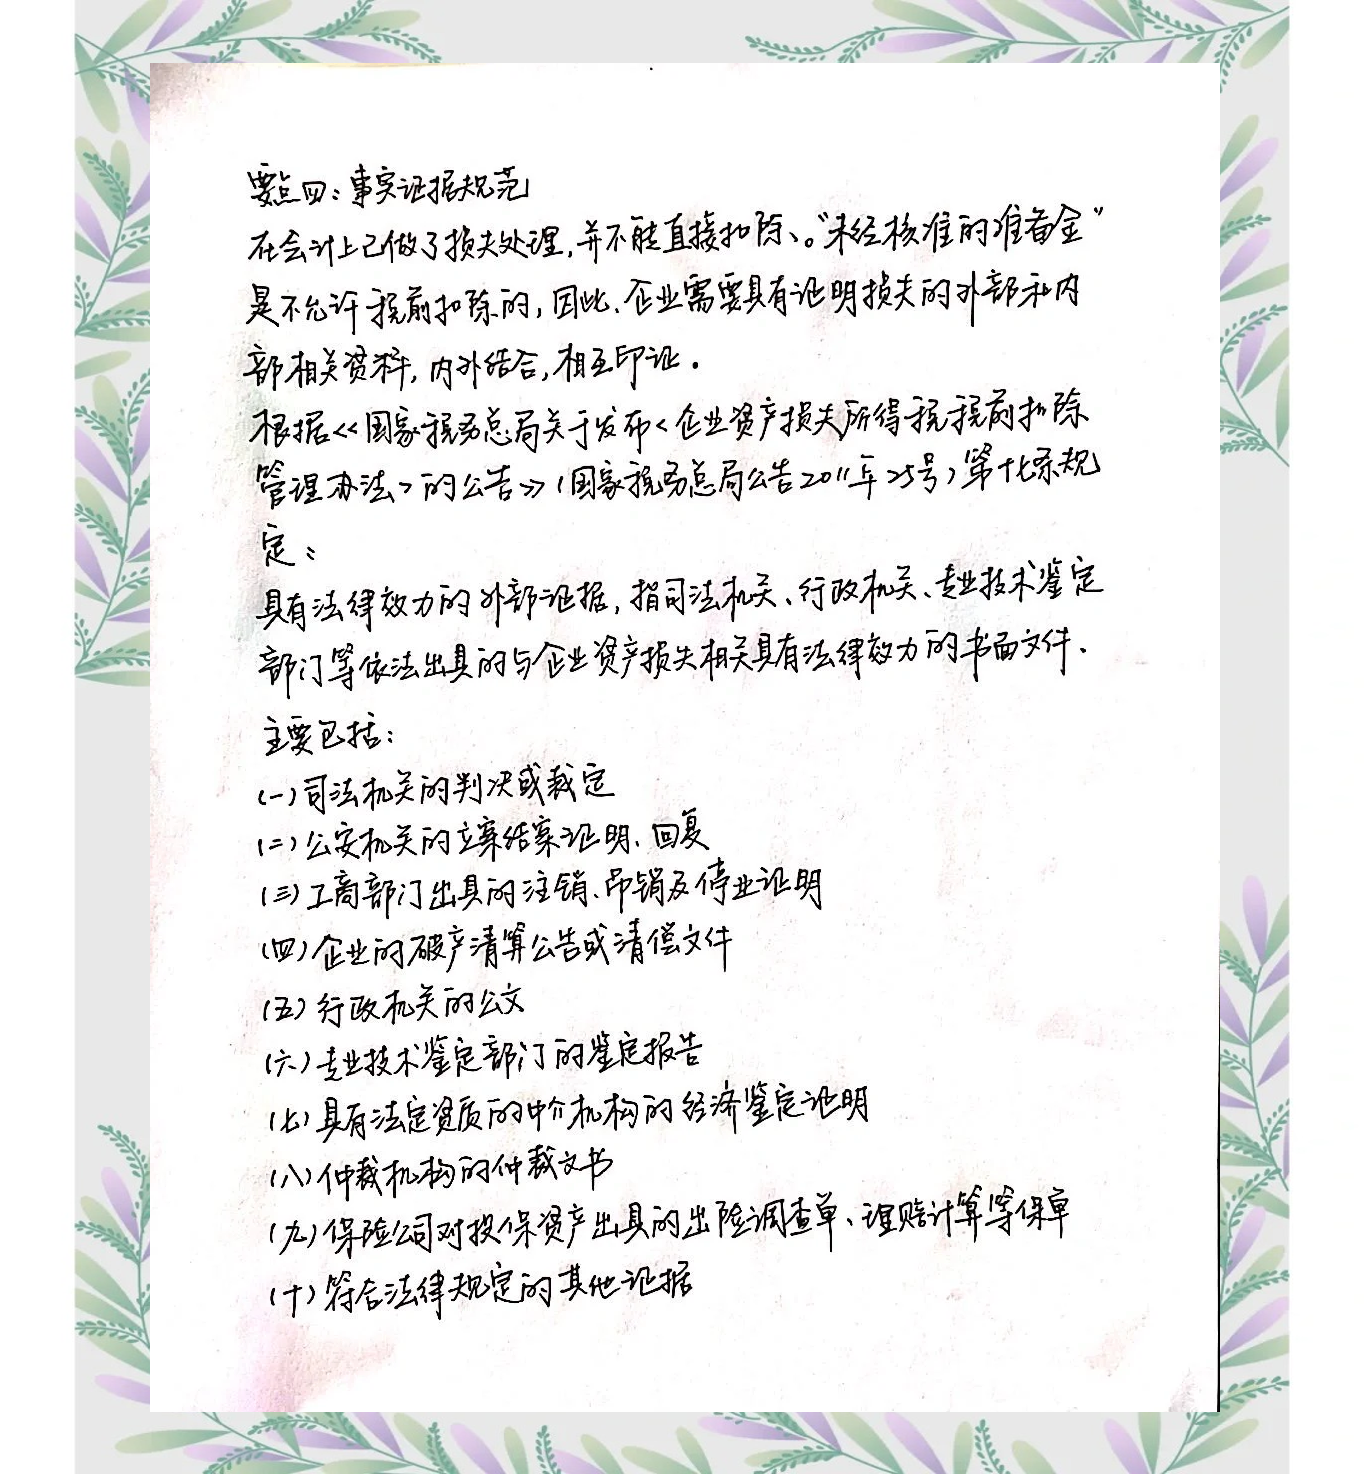 要点四：事实证据规范
在会计上已做了损失处理，并不能直接扣除、。“未经核准的准备金”
是不允许税前扣除的，因此、企业需要具有证明损失的外部和内
部相关资料，内外结合，相互印证。
根据<<国家税务总局关于发布<企业资产损失所得税税前扣除
管理办法>的公告>>（国家税务总局公告2011年25号）第十七条规
定：
具有法律效力的外部证据，指司法机关、行政机关、专业技术鉴定
部门等依法出具的与企业资产损失相关具有法律效力的书面文件。
主要包括：
(一)司法机关的判决或裁定
(二)公安机关的立案结案证明、回复
(三)工商部门出具的注销、吊销及停业证明
(四)企业的破产清算公告或清偿文件
(五)行政机关的公文
(六)专业技术鉴定部门的鉴定报告
(七)具有法定资质的中介机构的经济鉴定证明
(八)仲裁机构的仲裁文书
(九)保险公司对投保资产出具的出险调查单、理赔计算等保单
(十)符合法律规定的其他证据